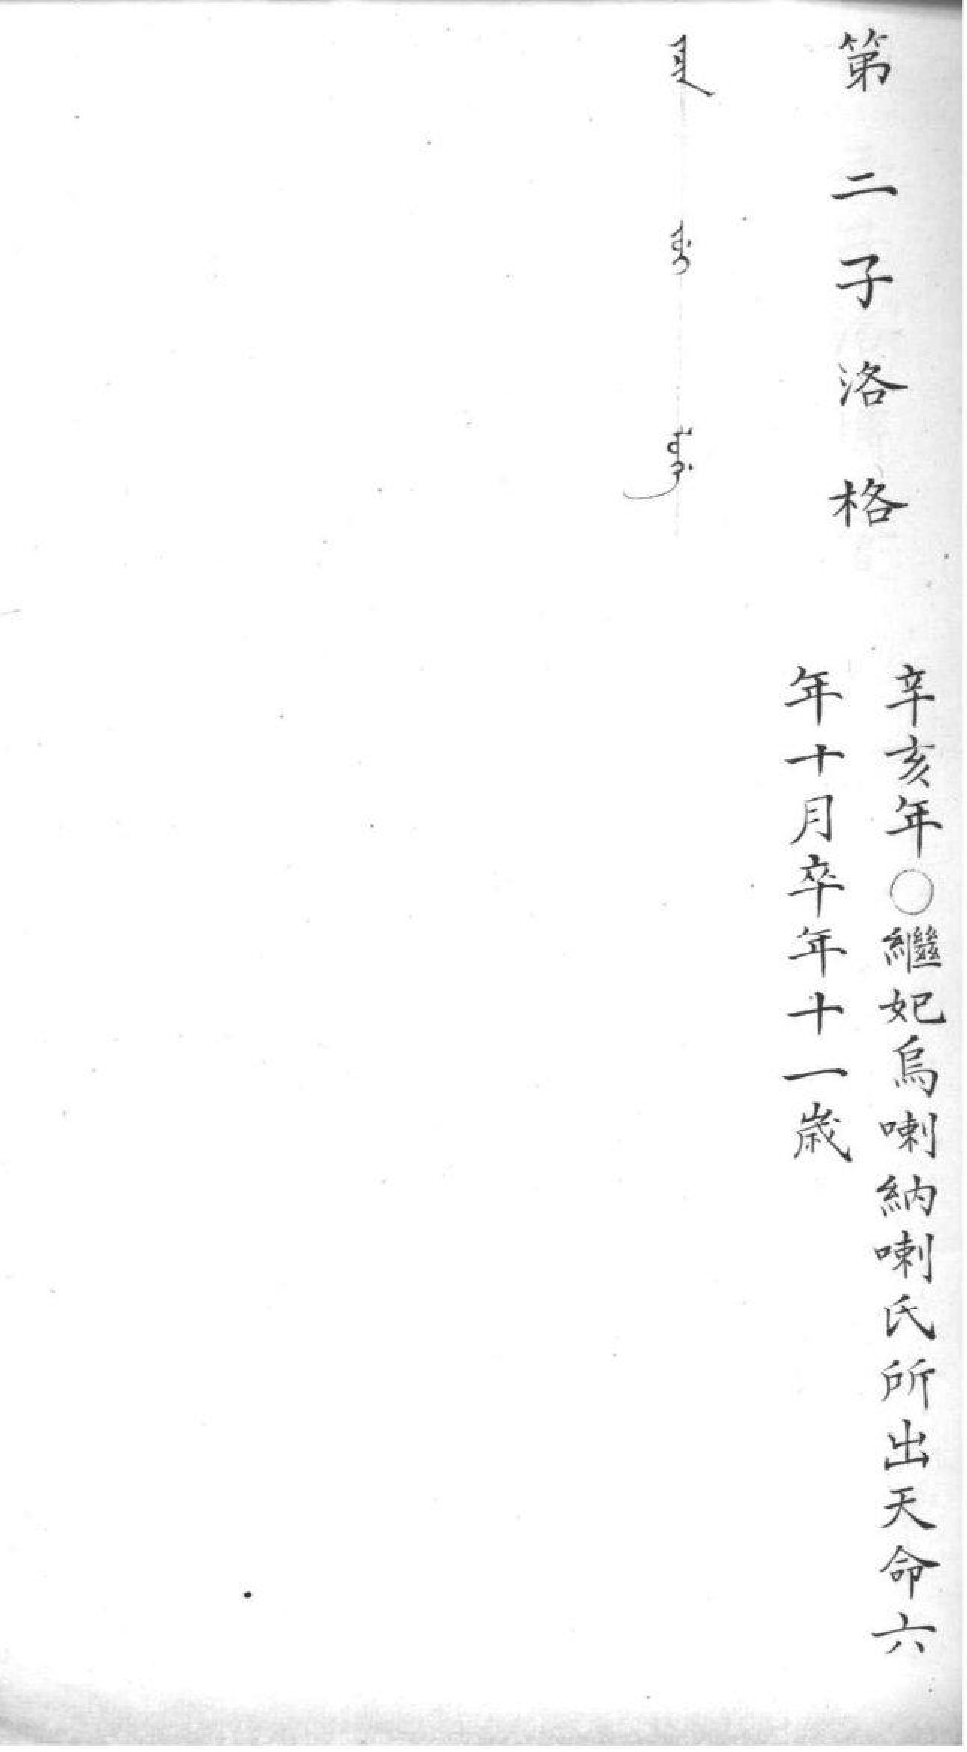 第二子洛格
辛亥年〇繼妃烏喇納喇氏所出天命六
年十月卒年十一歳